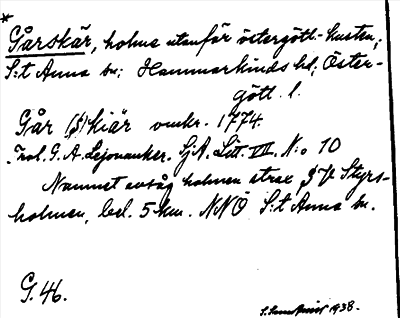 *
Gårskär, holme utanför östergötl.-kusten;
S:t Anna sn; Hammarkinds hd; Öster-
götl. l.
Går (s)kiär omkr. 1774.
G. A. Lejonanker. SjA. Litt. VII. N:o 10
Namnet avsåg holmen strax S V Styrs-
holmen, bel. 5 km. NNÖ S:t Anna sn.
G. 46.
1938.